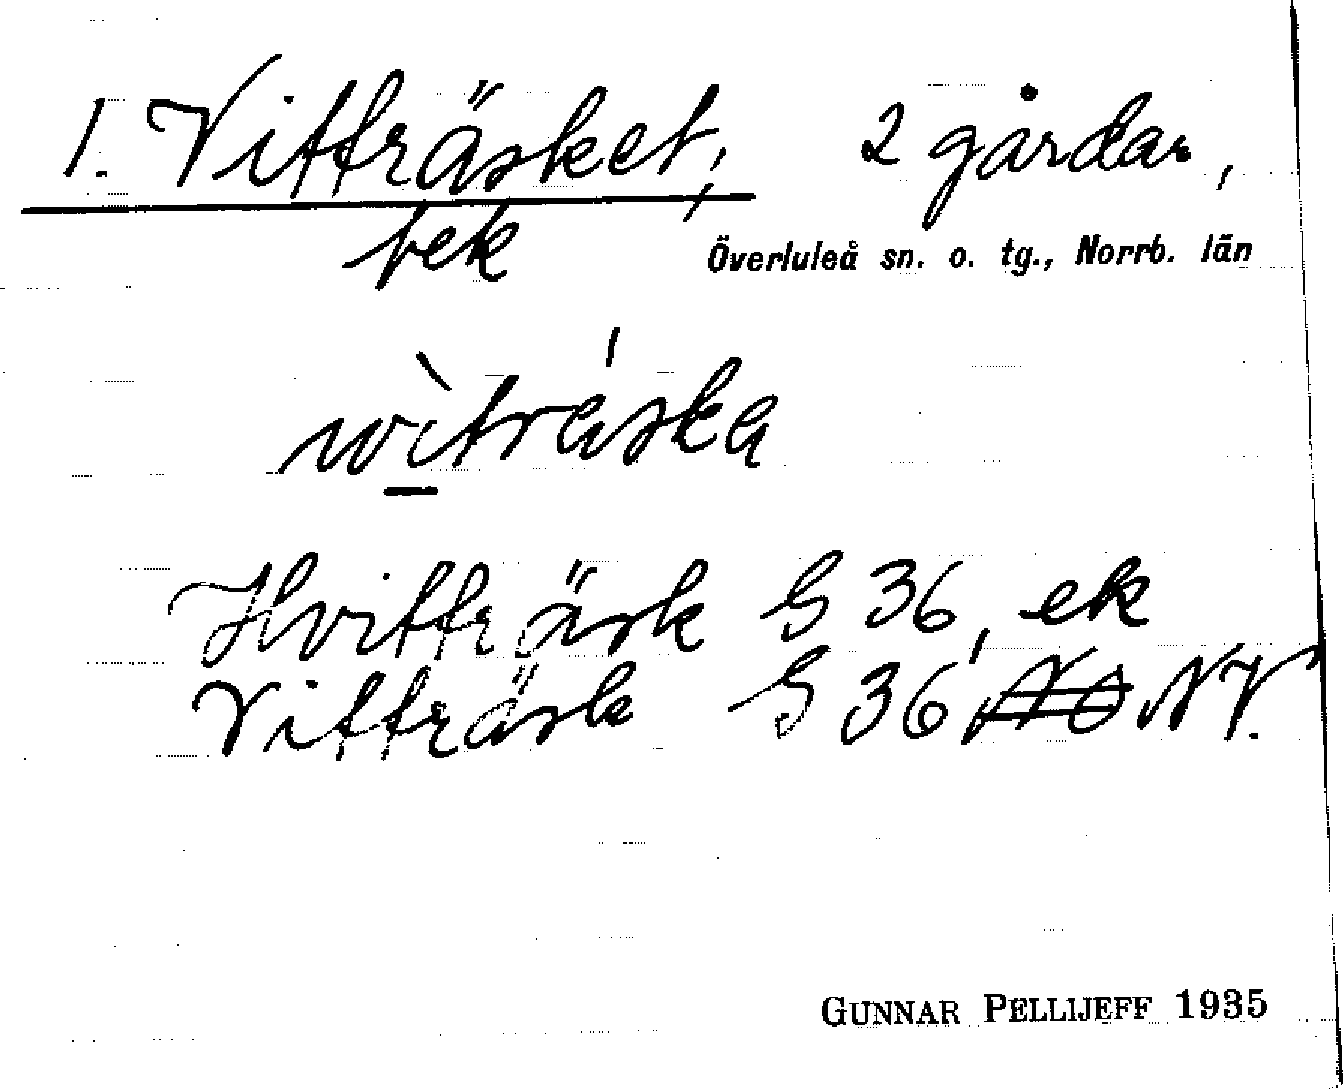 1. Vitträsket, 2 gårdar,
bek Överluleå sn. o. tg., Norrb. län
wìtráska
Hvitträsk G 36, ek
Vitträsk G 36, NO NV.
GUNNAR PELLIJEFF 1935